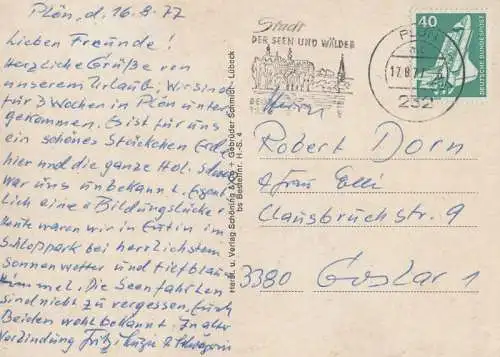 Plön, d. 16.8.77
Lieben Freunde!
Herzliche Grüße von
unserem Urlaub; Wir sind
für 3 Wochen in Plön unter
gekommen. Es ist für uns
ein schönes Stückchen Erde
hier und die ganze Hol.
war uns unbekannt. Eigent
lich eine "Bildungslücke".
Heute waren wir in Eutin im
Schloßpark bei herrlichstem
Sonnenwetter und tiefblau
Himmel. Die Seenfahrten
sind nicht zu vergessen, Euch
Beiden wohlbekannt. In alter
Verbindung Fritz
Stadt
DER SEEN UND WÄLDER
PLÖN
17.8.77
232
40
DEUTSCHE BUNDESPOST
Herrn
Robert Dorn
& Frau Elli
Clausbruchstr. 9
3380 Goslar 1
Herst. u. Verlag Schöning & Co + Gebrüder Schmidt, Lübeck
bs Bestellnr. H.-S. 4